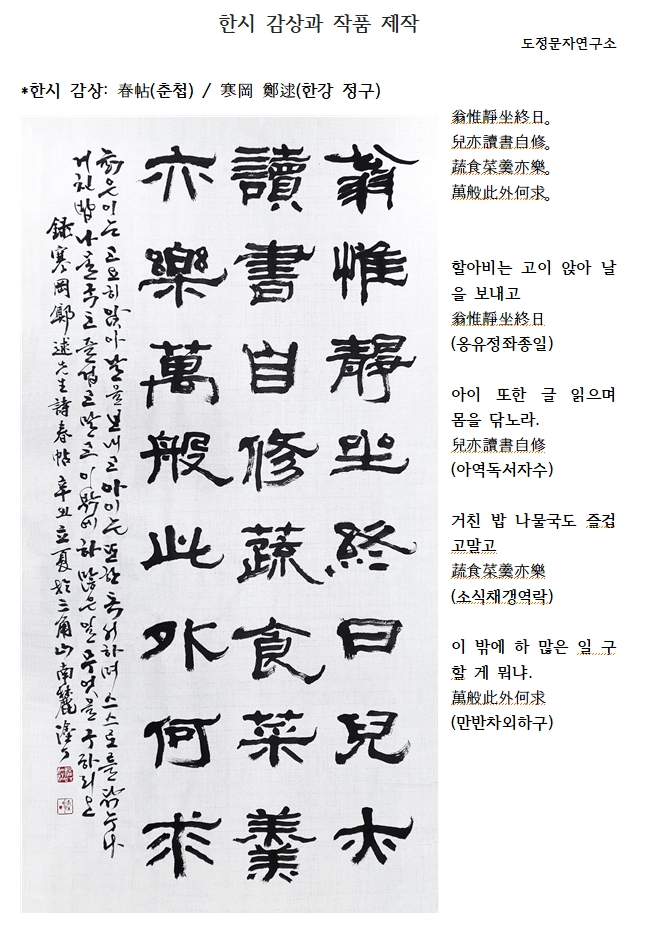 한시 감상과 작품 제작
도정문자연구소
*한시 감상: 春帖(춘첩) / 寒岡 鄭逑(한강 정구)
翁惟靜坐終日兒亦
讀書自修蔬食菜羹
亦樂萬般此外何求
늙은이는 고요히 앉아 날을 보내고 아이는 또한 독서하며 스스로를 닦누나
거친 밥 나물국도 즐겁고말고 이 밖에 하 많은 일 무엇을 구하리오
錄寒岡鄭逑先生詩春帖 辛丑立夏於三角山南麓
翁惟靜坐終日。
兒亦讀書自修。
蔬食菜羹亦樂。
萬般此外何求。
할아비는 고이 앉아 날
을 보내고
翁惟靜坐終日
(옹유정좌종일)
아이 또한 글 읽으며
몸을 닦노라.
兒亦讀書自修
(아역독서자수)
거친 밥 나물국도 즐겁
고말고
蔬食菜羹亦樂
(소식채갱역락)
이 밖에 하 많은 일 구
할 게 뭐냐.
萬般此外何求
(만반차외하구)